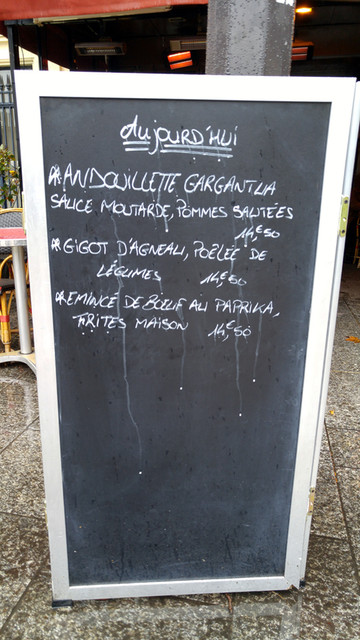 Aujourd'hui
*ANDOUILLETTE GARGANTUA
SAUCE MOUTARDE, POMMES SAUTÉES
14,€50
*GIGOT D'AGNEAU, POÊLÉE DE
LÉGUMES 14,€50
*EMINCÉ DE BOEUF AU PAPRIKA,
FRITES MAISON 14,€50